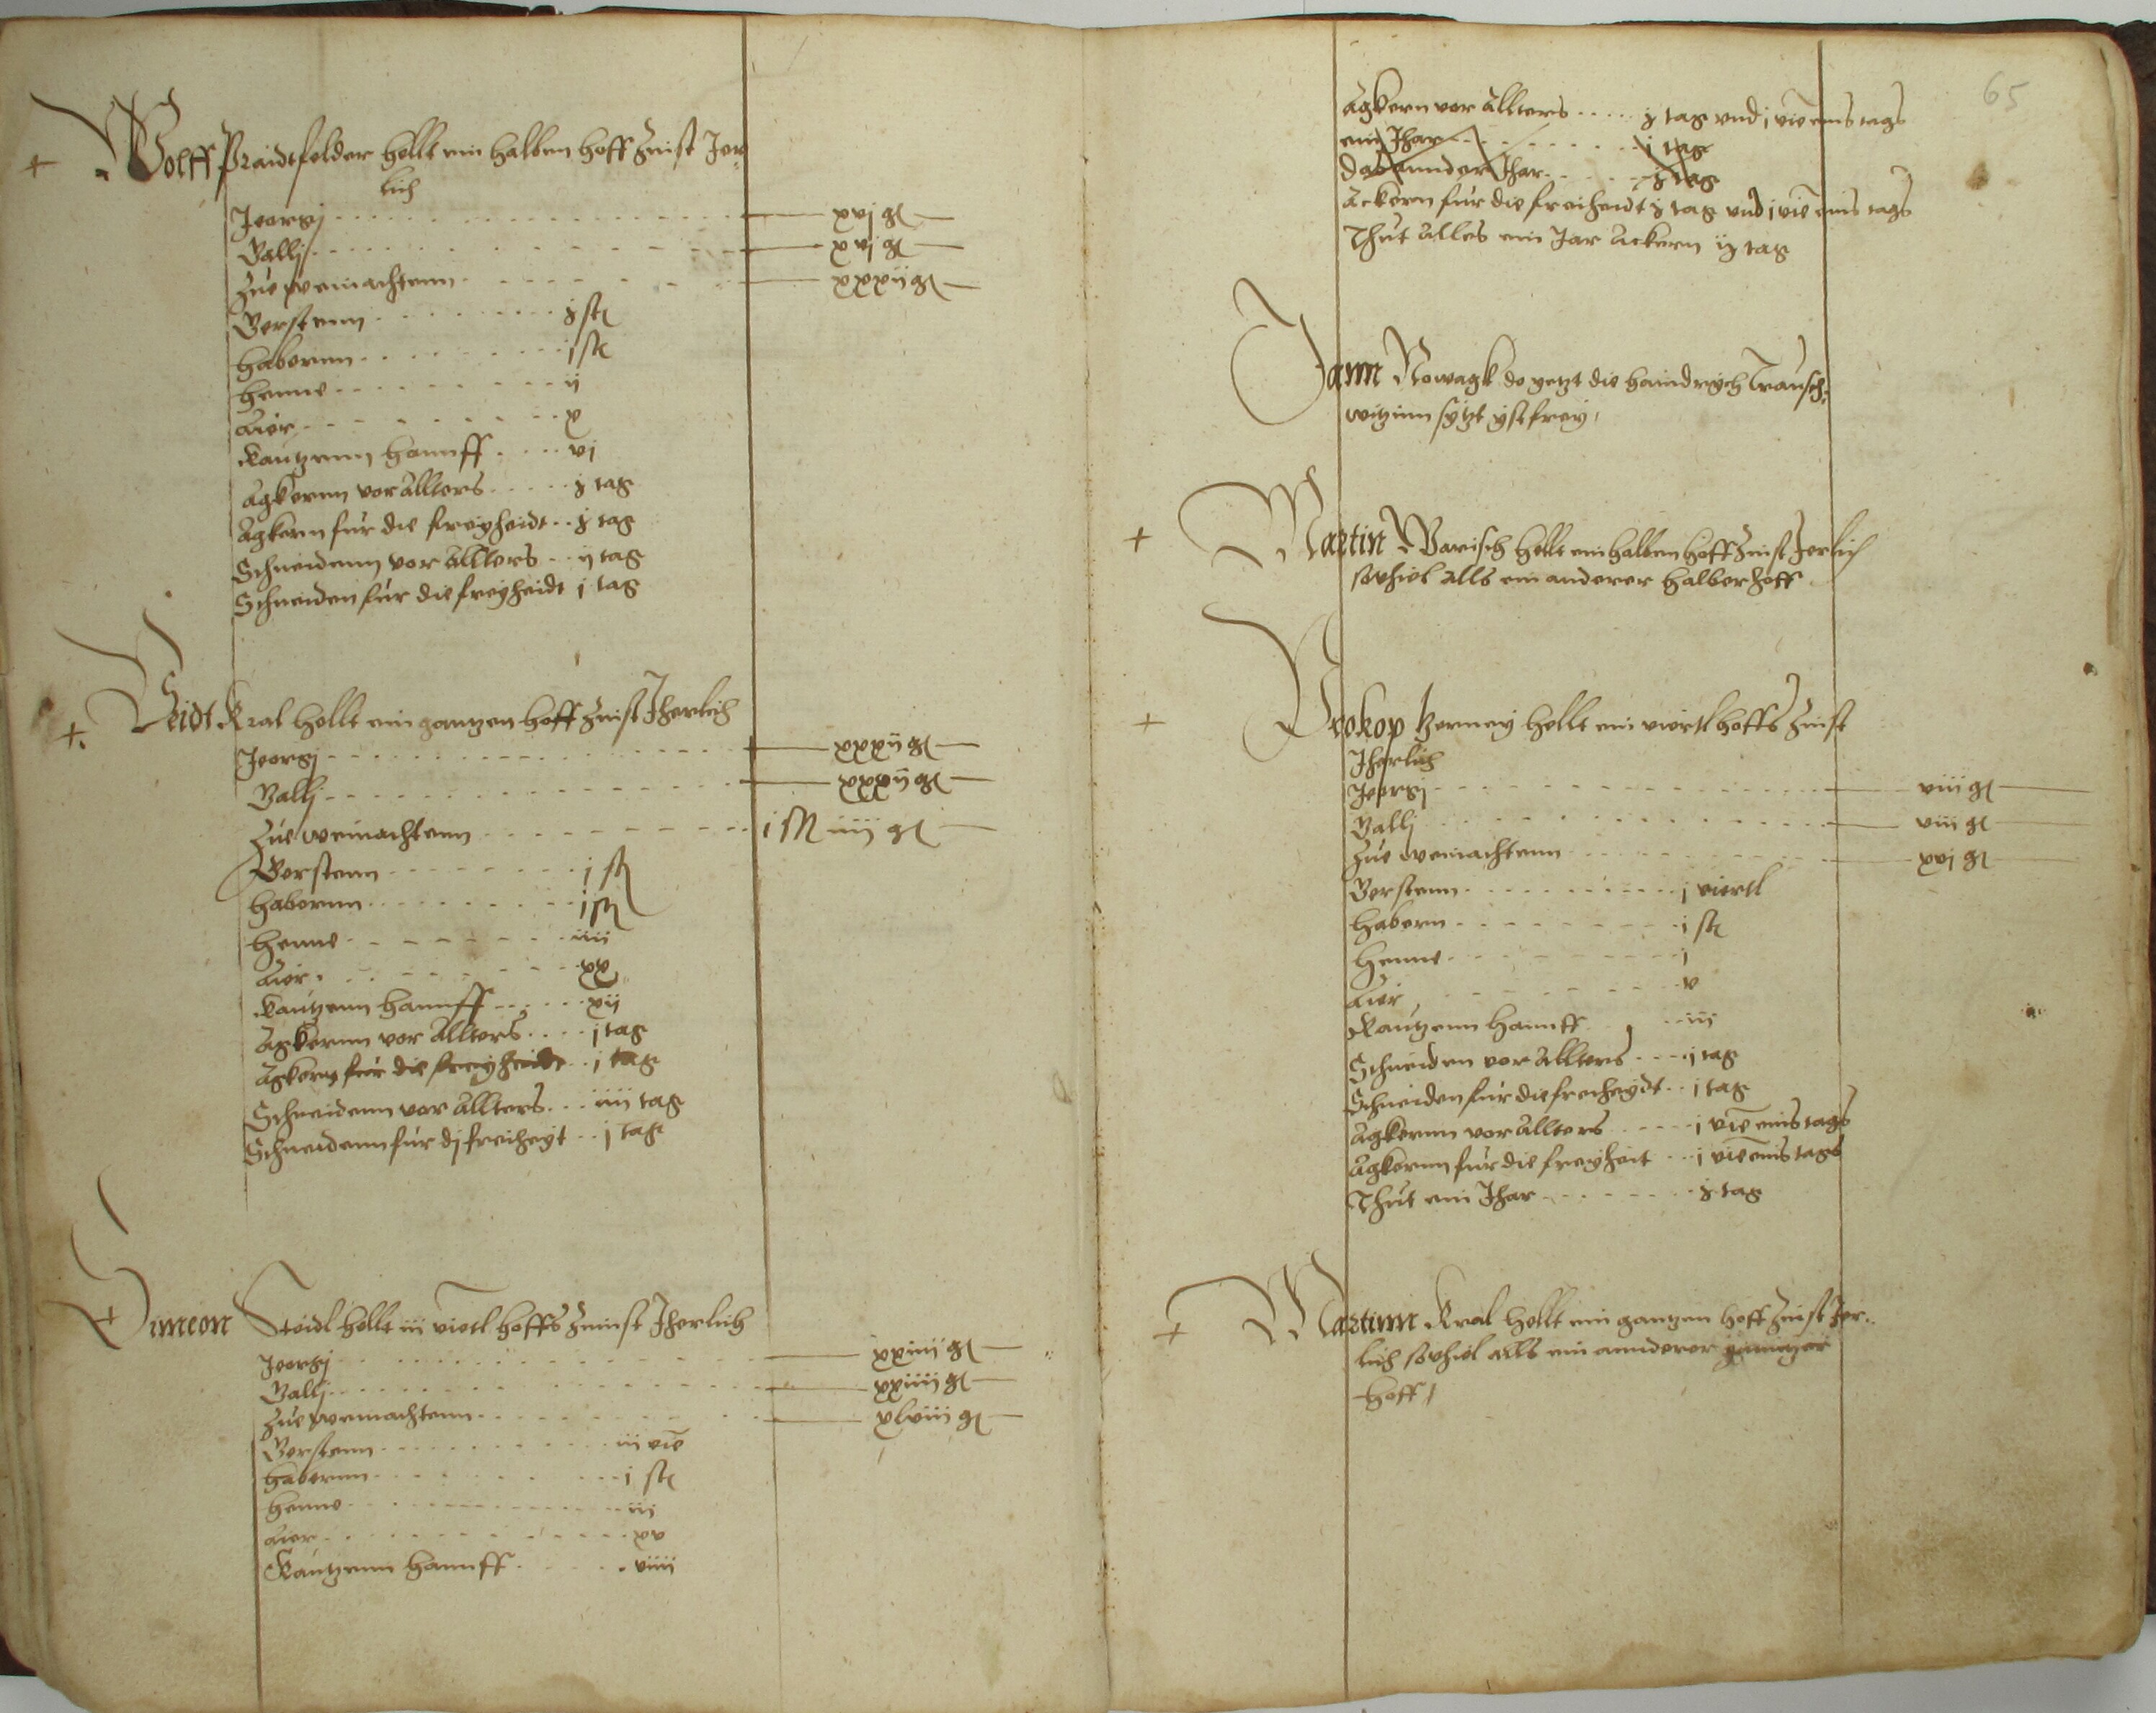 Wolff Praidtfelder hellt ein halben hoff Zinst Jer
lich
Jeorgj xvj gl
Gallj xvj gl
Zue weinachtenn xxxij gl
Gerstenn j st
habernn j st
henne ij
Aier x
Kautzenn hannff vj
Agkernn vor Allters j tag
Agkern fur die freyheidt j tag
Schneidenn vor Allters ij tag
Schneiden fur die freyheidt j tag
Veidt Kral hellt ein gantzen hoff Zinst Jherlich
Jeorgj xxxij gl
Gallj xxxij gl
Zue weinachtenn j ß iiij gl
Gerstenn j st
habernn j st
Henne iiij
Aier xx
Kautzenn hannff xij
Agkernn vor Allters j tag
Agkern fur die freyheidt j tag
Schneidenn vor Allters iiij tag
Schneidenn fur dj freiheyt j tag
Simeon Steidl hellt iij viertl hoffs Zinnst Jherlich
Jeorgj xxiiij gl
Gallj xxiiij gl
Zue weinachtenn xlviij gl
Gerstenn iij vie
habernn j st
henne iij
Aier xv
Kautzenn hannff viiij
65
Agkern vor Allters j tag vnd j vie eins tags
ein Jhar j tag
das annder Jhar j tag
Ackern fur die freiheidt j tag vnd j vie eins tags
Thut Alles ein Jar Ackern ij tag
Jann Nowagk do yetzt die haindrych Trausch¬
witzinn sytzt yst frey
Martin Warisch hellt ein halben hoff Zinst Jerlich
sovhiel alls ein anderer halber hoff
Prokop hellt ein viertl hoffs Zinst
Jherlich
Jeorgj viij gl
Gallj viij gl
Zue weinachtenn xvj gl
Gerstenn j viertl
habern j st
Henne j
Aier v
Kautzenn hannff iij
Schneiden vor Allters j tag
Schneiden fur die freiheydt j tag
Agkernn vor Allters j vie eins tags
Agkernn fur die freyheit j vie eins tags
Thut ein Jhar j tag
Martinn Kral hellt ein gantzen hoff Zinst Jer¬
lich sovhiel alls ein annderer ganntzer
hoff